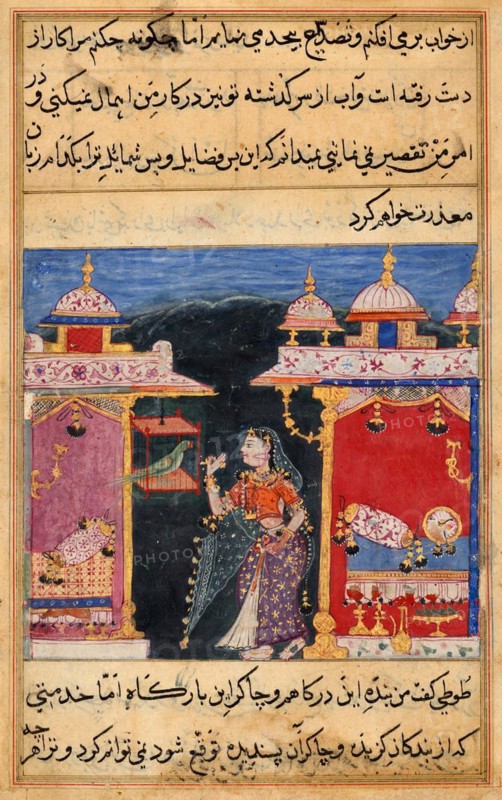 از خواب برمی افکنم و تصدّاع بیحد می نمایم امّا چکونه چکنم مرا کار از
دست رفته است و آب از سر کذشته تو نیز در کار من اهمال نمیکنی و در
امر من تقصیر نمی نمائی نمیدانم که این بس فضایل و بس شمایل ترا بکدام زبان
معذرت خواهم کرد
PHOTO
PHOTO
طوطی کفت من بنده این درکاهم و چاکر این بارکاه امّا خدمتی
که از بندکان کزیده و چاکران پسندیده توقع شود نمی توانم کرد و ترا هرچه